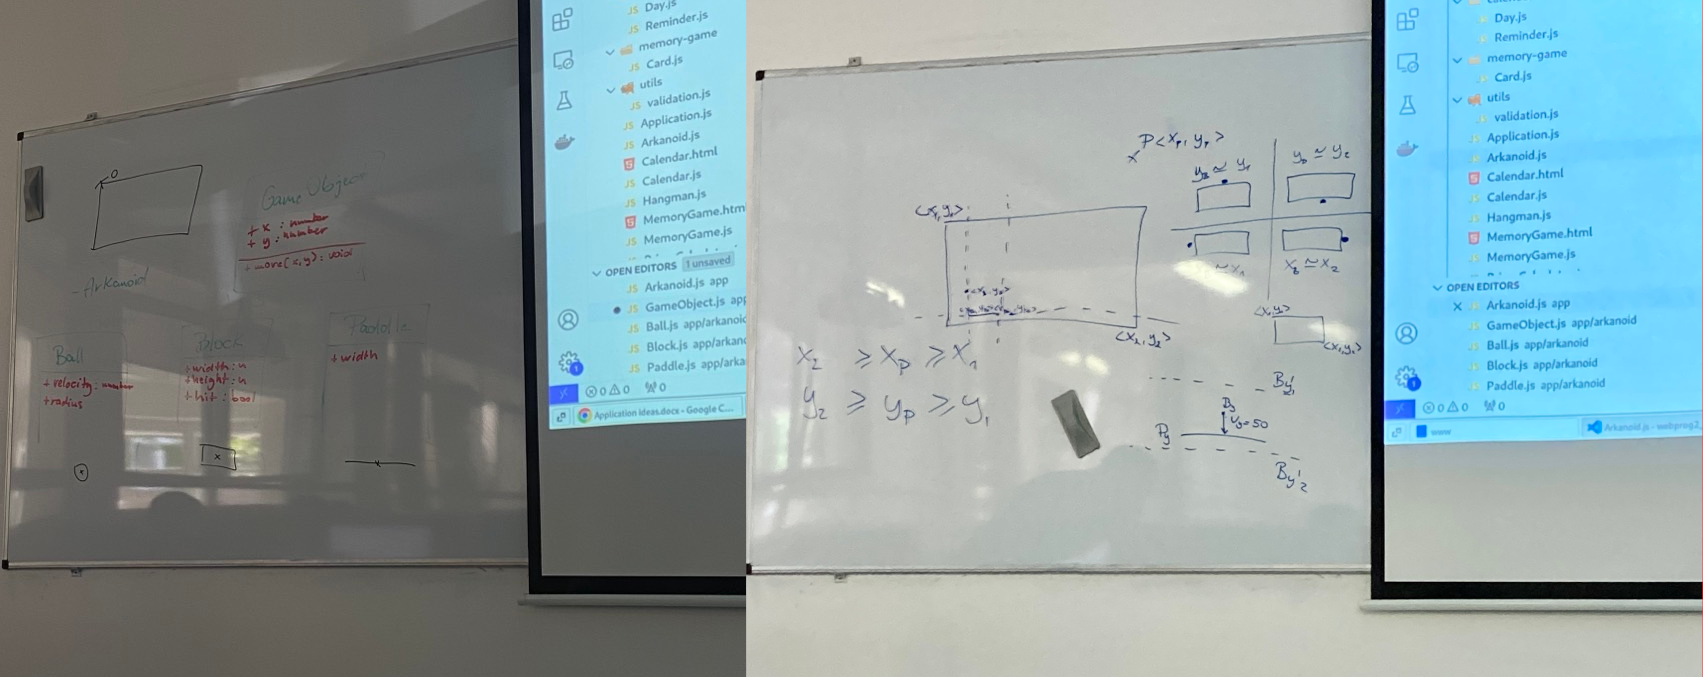 O
GameObject
+ x : number
+ y : number
+ move(x,y): void
- Arkanoid
Ball
+ velocity: number
+radius
Block
+width: n
+height: n
+hit: bool
Paddle
+ width
Day.js
JS Reminder.js
memory-game
JS Card.js
utils
JS validation.js
JS Application.js
JS Arkanoid.js
Calendar.html
JS Calendar.js
JS Hangman.js
MemoryGame.htm
JS MemoryGame.js
OPEN EDITORS 1 unsaved
JS Arkanoid.js app
JS GameObject.js app
JS Ball.js app/arkanoid
JS Block.js app/arkano
JS Paddle.js app/arka
0 0 0
Application ideas.docx - Google C...
P<xp, yp>
<x1, y1>
<x2, y2>
x2 ≥ xp ≥ x1
y2 ≥ yp ≥ y1
yb ≃ y1
yb ≃ y2
≃ x1
xb ≃ x2
By'1
By
vy=50
Py
By'2
Day.js
Reminder.js
memory-game
Card.js
utils
validation.js
Application.js
Arkanoid.js
Calendar.html
Calendar.js
Hangman.js
MemoryGame.html
MemoryGame.js
OPEN EDITORS
Arkanoid.js app
GameObject.js app/arkanoid
Ball.js app/arkanoid
Block.js app/arkanoid
Paddle.js app/arkanoid
0 0 0
www
Arkanoid.js - webprog2